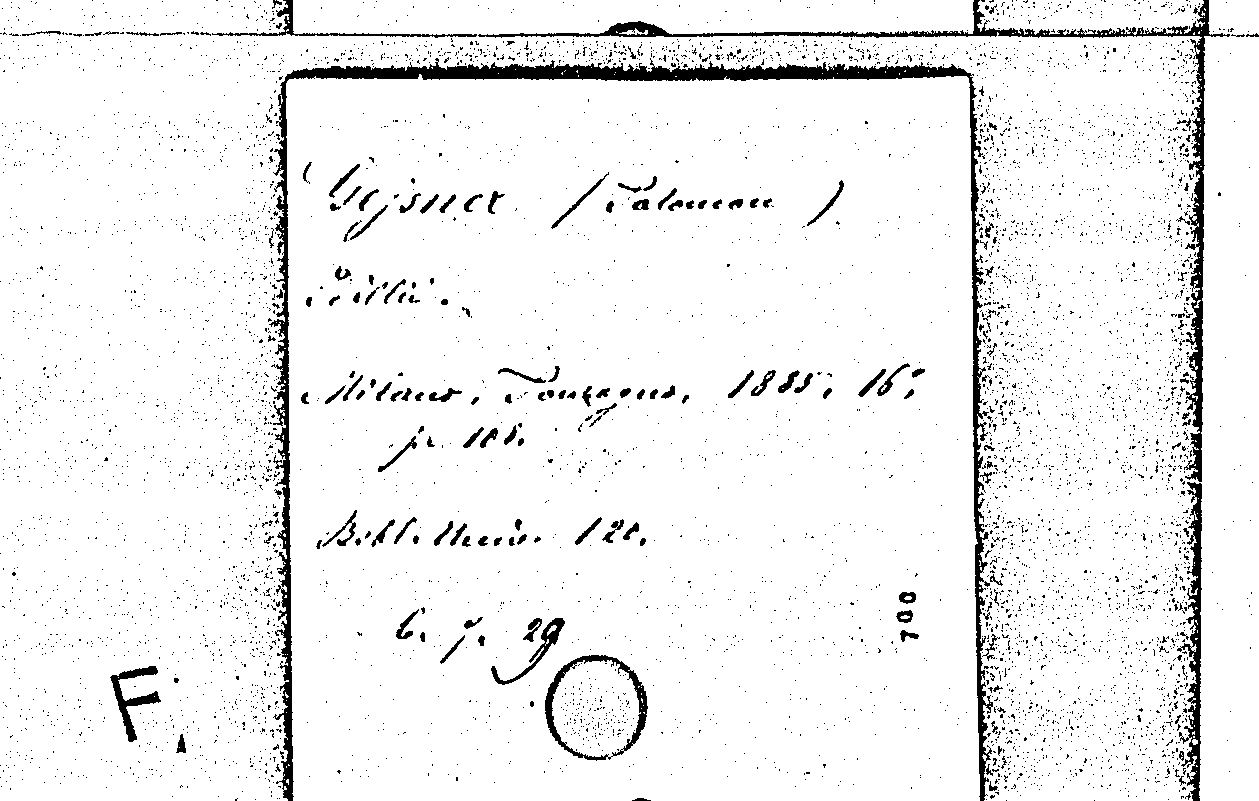 Gessner (Salomon)
Idillii.
Milano, Sonzogno, 1885, 16°,
p. 108.
Bibl. Univ. 120.
6. 7. 29
700
F